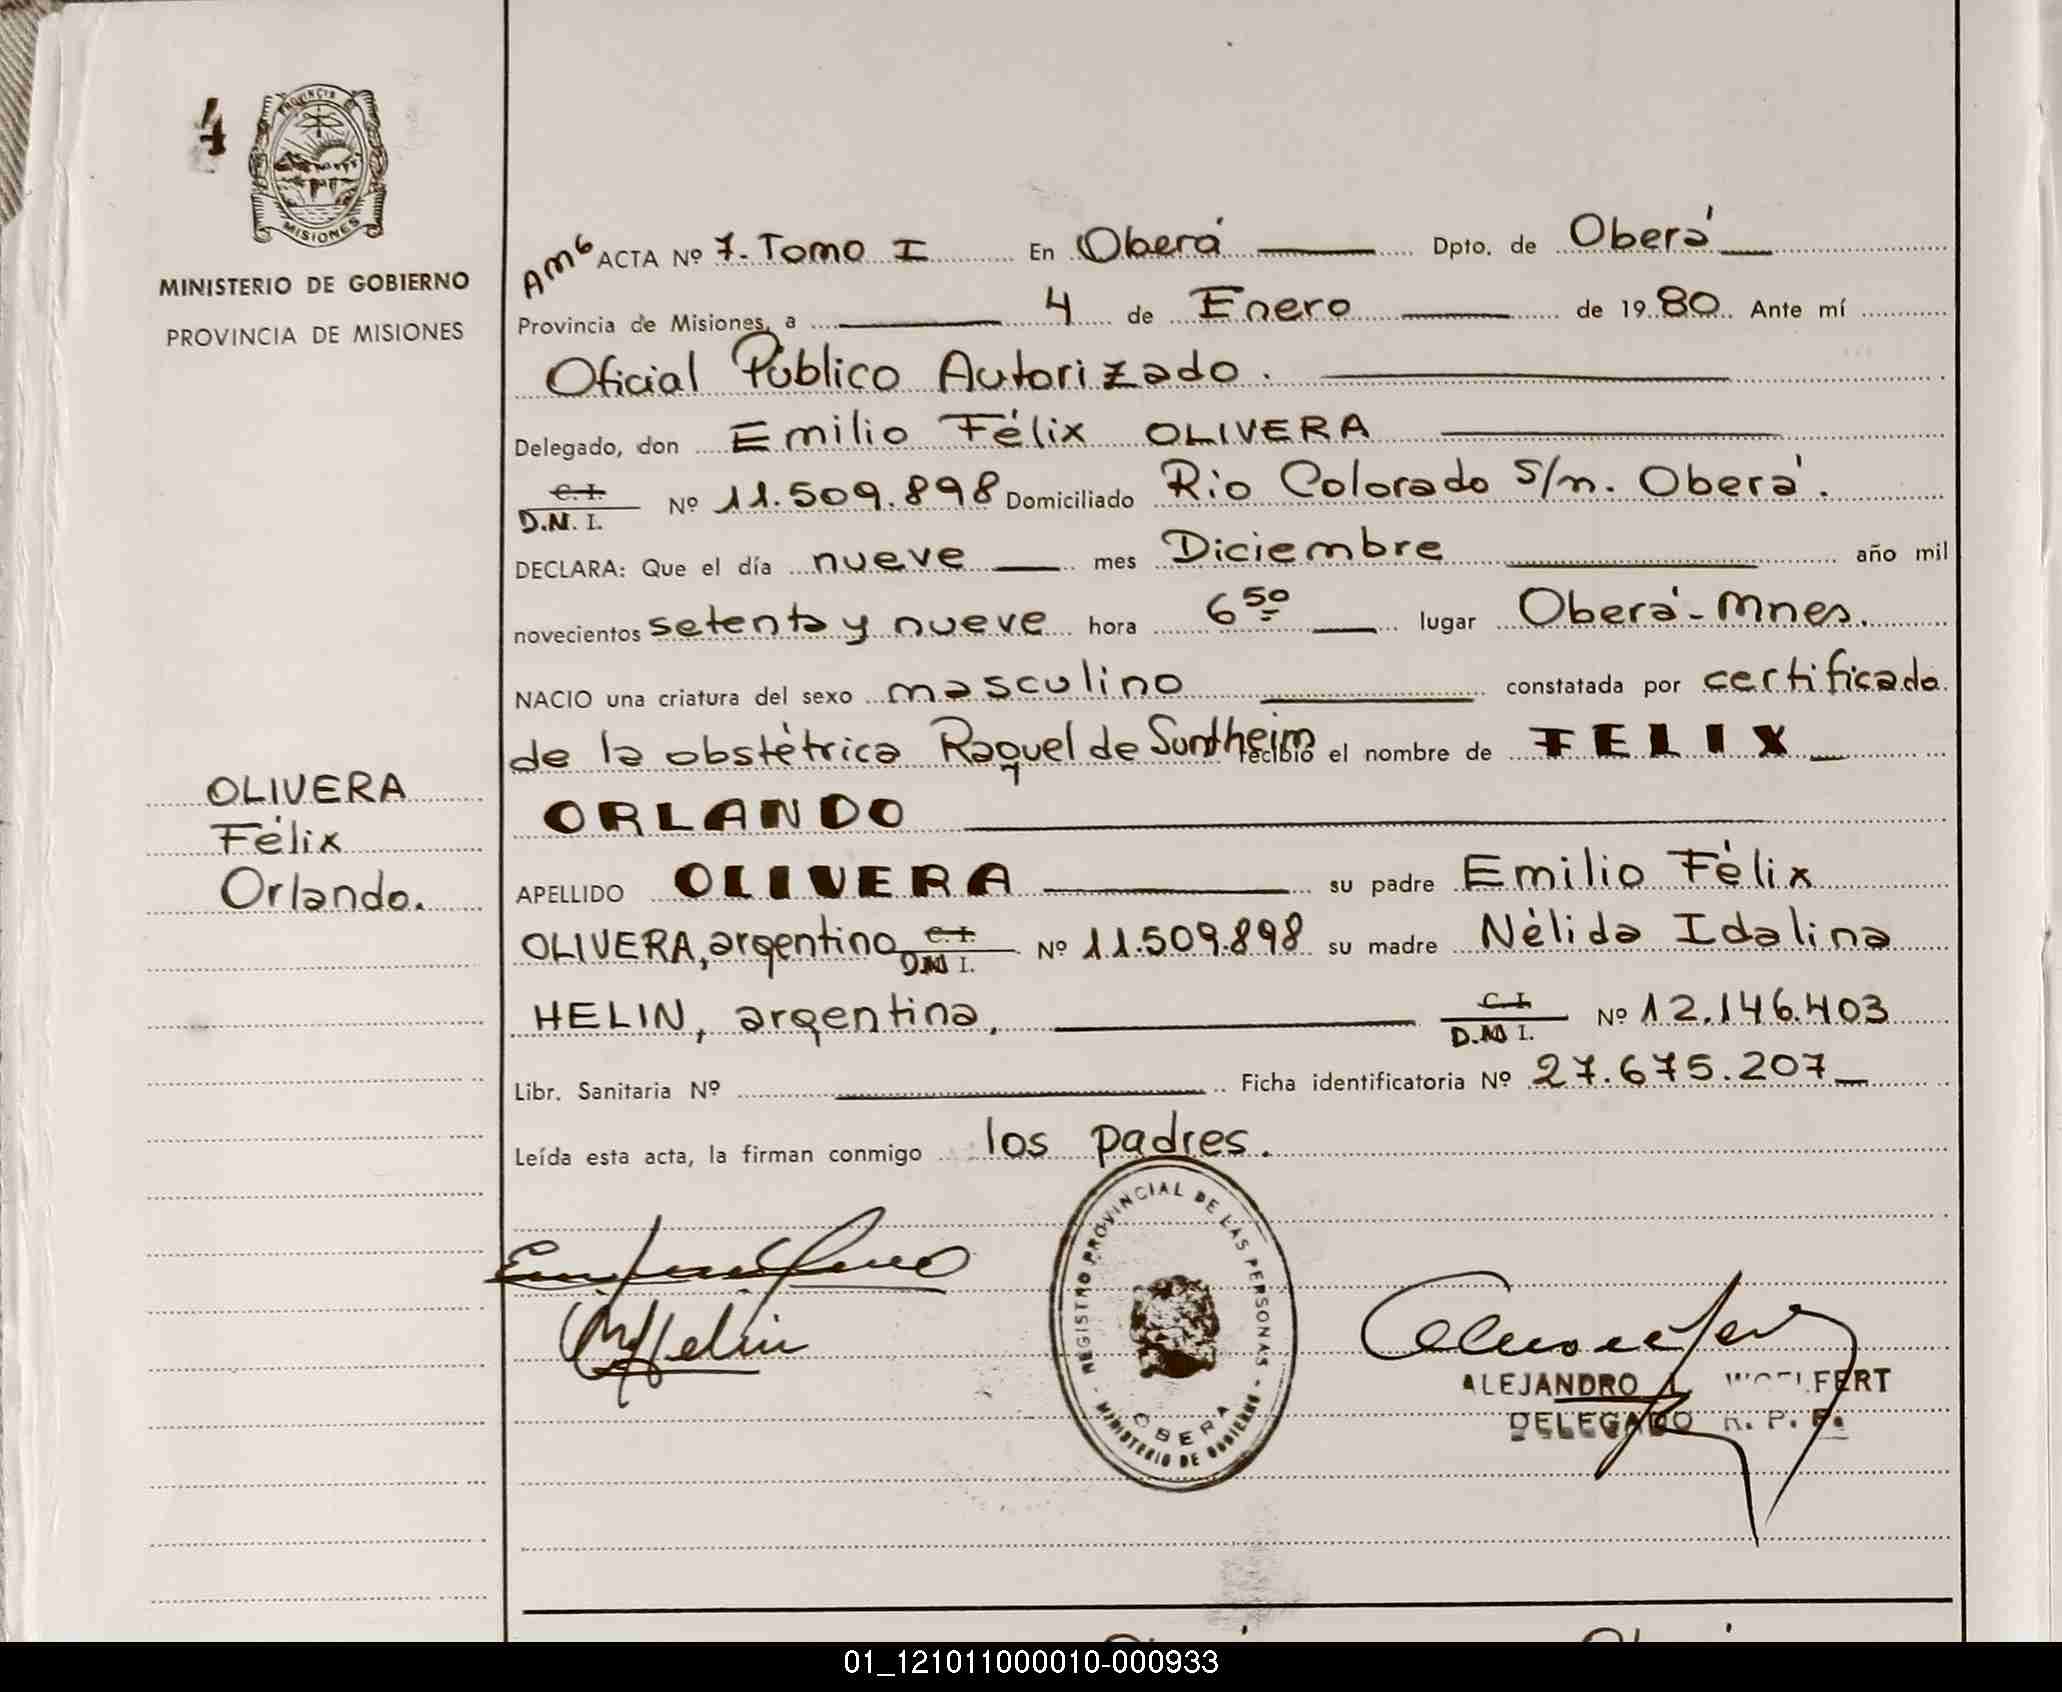 4
PROVINCIA DE
MISIONES
MINISTERIO DE GOBIERNO
PROVINCIA DE MISIONES
OLIVERA
Félix
Orlando.
Am6 ACTA Nº 7. Tomo I En Oberá Dpto. de Oberá
Provincia de Misiones, a 4 de Enero de 1980. Ante mí
Oficial Público Autorizado.
Delegado, don Emilio Félix OLIVERA
C. I.
D.N. I. Nº 11.509.898 Domiciliado Rio Colorado s/n. Oberá.
DECLARA: Que el día nueve mes Diciembre año mil
novecientos setenta y nueve hora 6 50 lugar Oberá - Mnes.
NACIO una criatura del sexo masculino constatada por certificado
de la obstétrica Raquel de Sundheim recibió el nombre de FELIX
ORLANDO
APELLIDO OLIVERA su padre Emilio Félix
OLIVERA, argentino C. I. D.N I. Nº 11.509.898 su madre Nélida Idalina
HELIN, argentina, C. I. D.N I. Nº 12.146.403
Libr. Sanitaria Nº Ficha identificatoria Nº 27.675.207
Leída esta acta, la firman conmigo los padres.
REGISTRO PROVINCIAL DE LAS PERSONAS
OBERA
MINISTERIO DE GOBIERNO
Helin
ALEJANDRO L. WOELFERT
DELEGADO R. P. P.
01_121011000010-000933